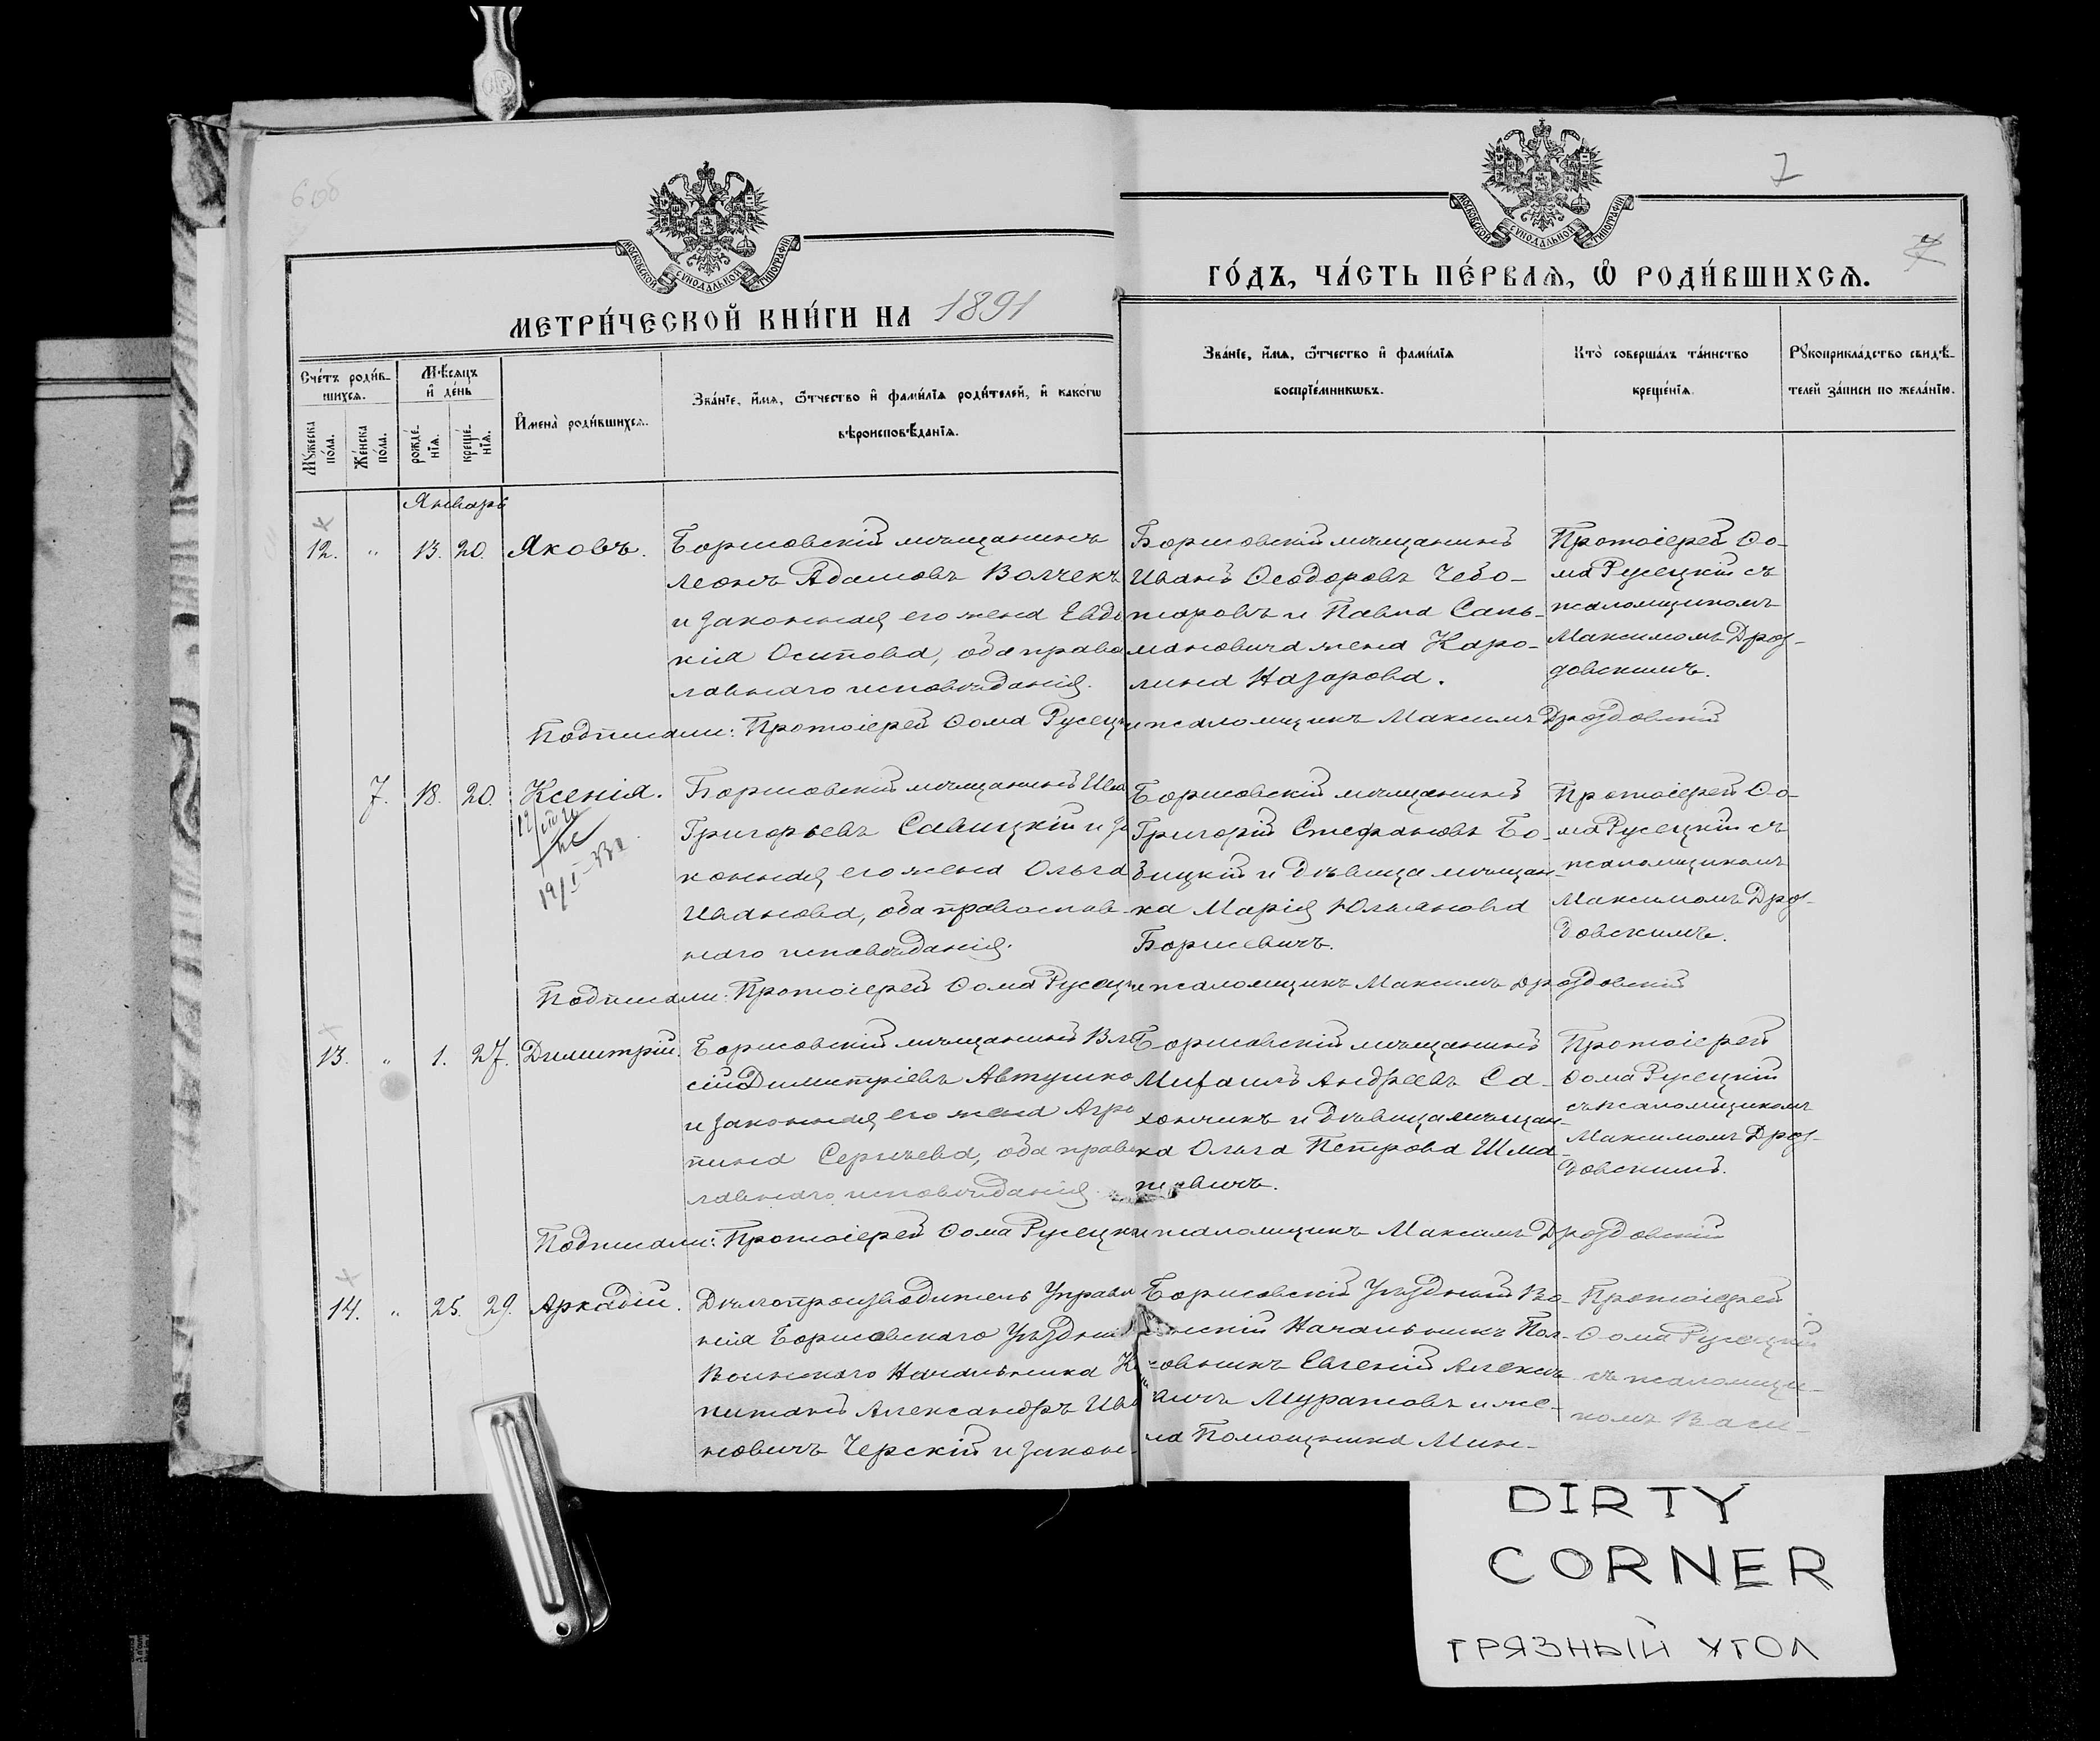 6 об
7
7
МОСКОВСКОЙ СѴНОДАЛЬНОЙ ТИПОГРАФІИ
МОСКОВСКОЙ СѴНОДАЛЬНОЙ ТИПОГРАФІИ
МЕТРИ́ЧЕСКОЙ КНИ́ГИ НА 1891
ГО́ДЪ, ЧА́СТЬ ПЕ́РВАѦ, Ѽ РОДИ́ВШИХСѦ.
Сче́тъ роди́в-
шихсѧ.
Мѣ́сѧцъ
и҆ де́нь
Мꙋ́жеска
по́ла.
Же́нска
по́ла.
рожде́-
нїѧ.
креще́-
нїѧ.
И҆мена̀ роди́вшихсѧ.
Зва́нїе, и҆́мѧ, ѻ҆́тчество и҆ фами́лїѧ роди́телей, и҆ како́гѡ
вѣроисповѣ́данїѧ.
Зва́нїе, и҆́мѧ, ѻ҆́тчество и҆ фами́лїѧ
воспрїе́мникѡвъ.
Кто̀ соверша́лъ та́инство
креще́нїѧ.
Рꙋкоприкла́дство свидѣ́-
телей за́писи по жела́нїю.
Январь
12. " 13. 20. Яковъ.
Борисовскій мѣщанинъ
Леонъ Адамовъ Волчекъ
и законная его жена Евдо
кія Осипова, оба право
славнаго исповѣданія.
Борисовскій мѣщанинъ
Иванъ Ѳеодоровъ Чебо-
таровъ и Павла Сань-
мановича жена Каро-
лина Назарова.
Протоіерей Ѳо-
ма Русецкій съ
псаломщикомъ
Максимомъ Дроз-
довскимъ.
Подписали: Протоіерей Ѳома Русецк и псаломщикъ Максимъ Дроздовскій
7. 18. 20. Ксенія.
Борисовскій мѣщанинъ Ива
Григорьевъ Савицкій и за
конная его жена Ольга
Иванова, оба православ-
наго исповѣданія.
Борисовскій мѣщанинъ
Григорій Стефановъ Бо-
вицкій и дѣвица мѣщан-
ка Марія Юльянова
Борисевичъ.
Протоіерей Ѳо-
ма Русецкій съ
псаломщикомъ
Максимомъ Дроз-
довскимъ.
Подписали: Протоіерей Ѳома Русецк и псаломщикъ Максимъ Дроздовскій
13. " 1. 27. Димитрій.
Борисовскій мѣщанинъ Вла
сій Димитріевъ Автушко
и законная его жена Агро
пина Сергѣева, оба право
славнаго исповѣданія.
Борисовскій мѣщанинъ
Михаилъ Андреевъ Са-
хончикъ и дѣвица мѣщан-
ка Ольга Петрова Шма-
тевичъ.
Протоіерей
Ѳома Русецкій
съ псаломщикомъ
Максимомъ Дроз-
довскимъ.
Подписали: Протоіерей Ѳома Русецкі и псаломщикъ Максимъ Дроздовскій
14. " 25. 29. Аркадій.
Дѣлопроизводитель Управле
нія Борисовскаго Уѣздна
Воинскаго Начальника Ка
питанъ Александръ Ива
новичъ Черскій и закон-
Борисовскій Уѣздный Во-
инскій Начальникъ Пол-
ковникъ Евгеній Алексѣ
вичъ Муратовъ и же-
на Помощника Мин-
Протоіерей
Ѳома Русецкій
съ псаломщи-
комъ Васи-
DIRTY
CORNER
ГРЯЗНЫЙ УГОЛ